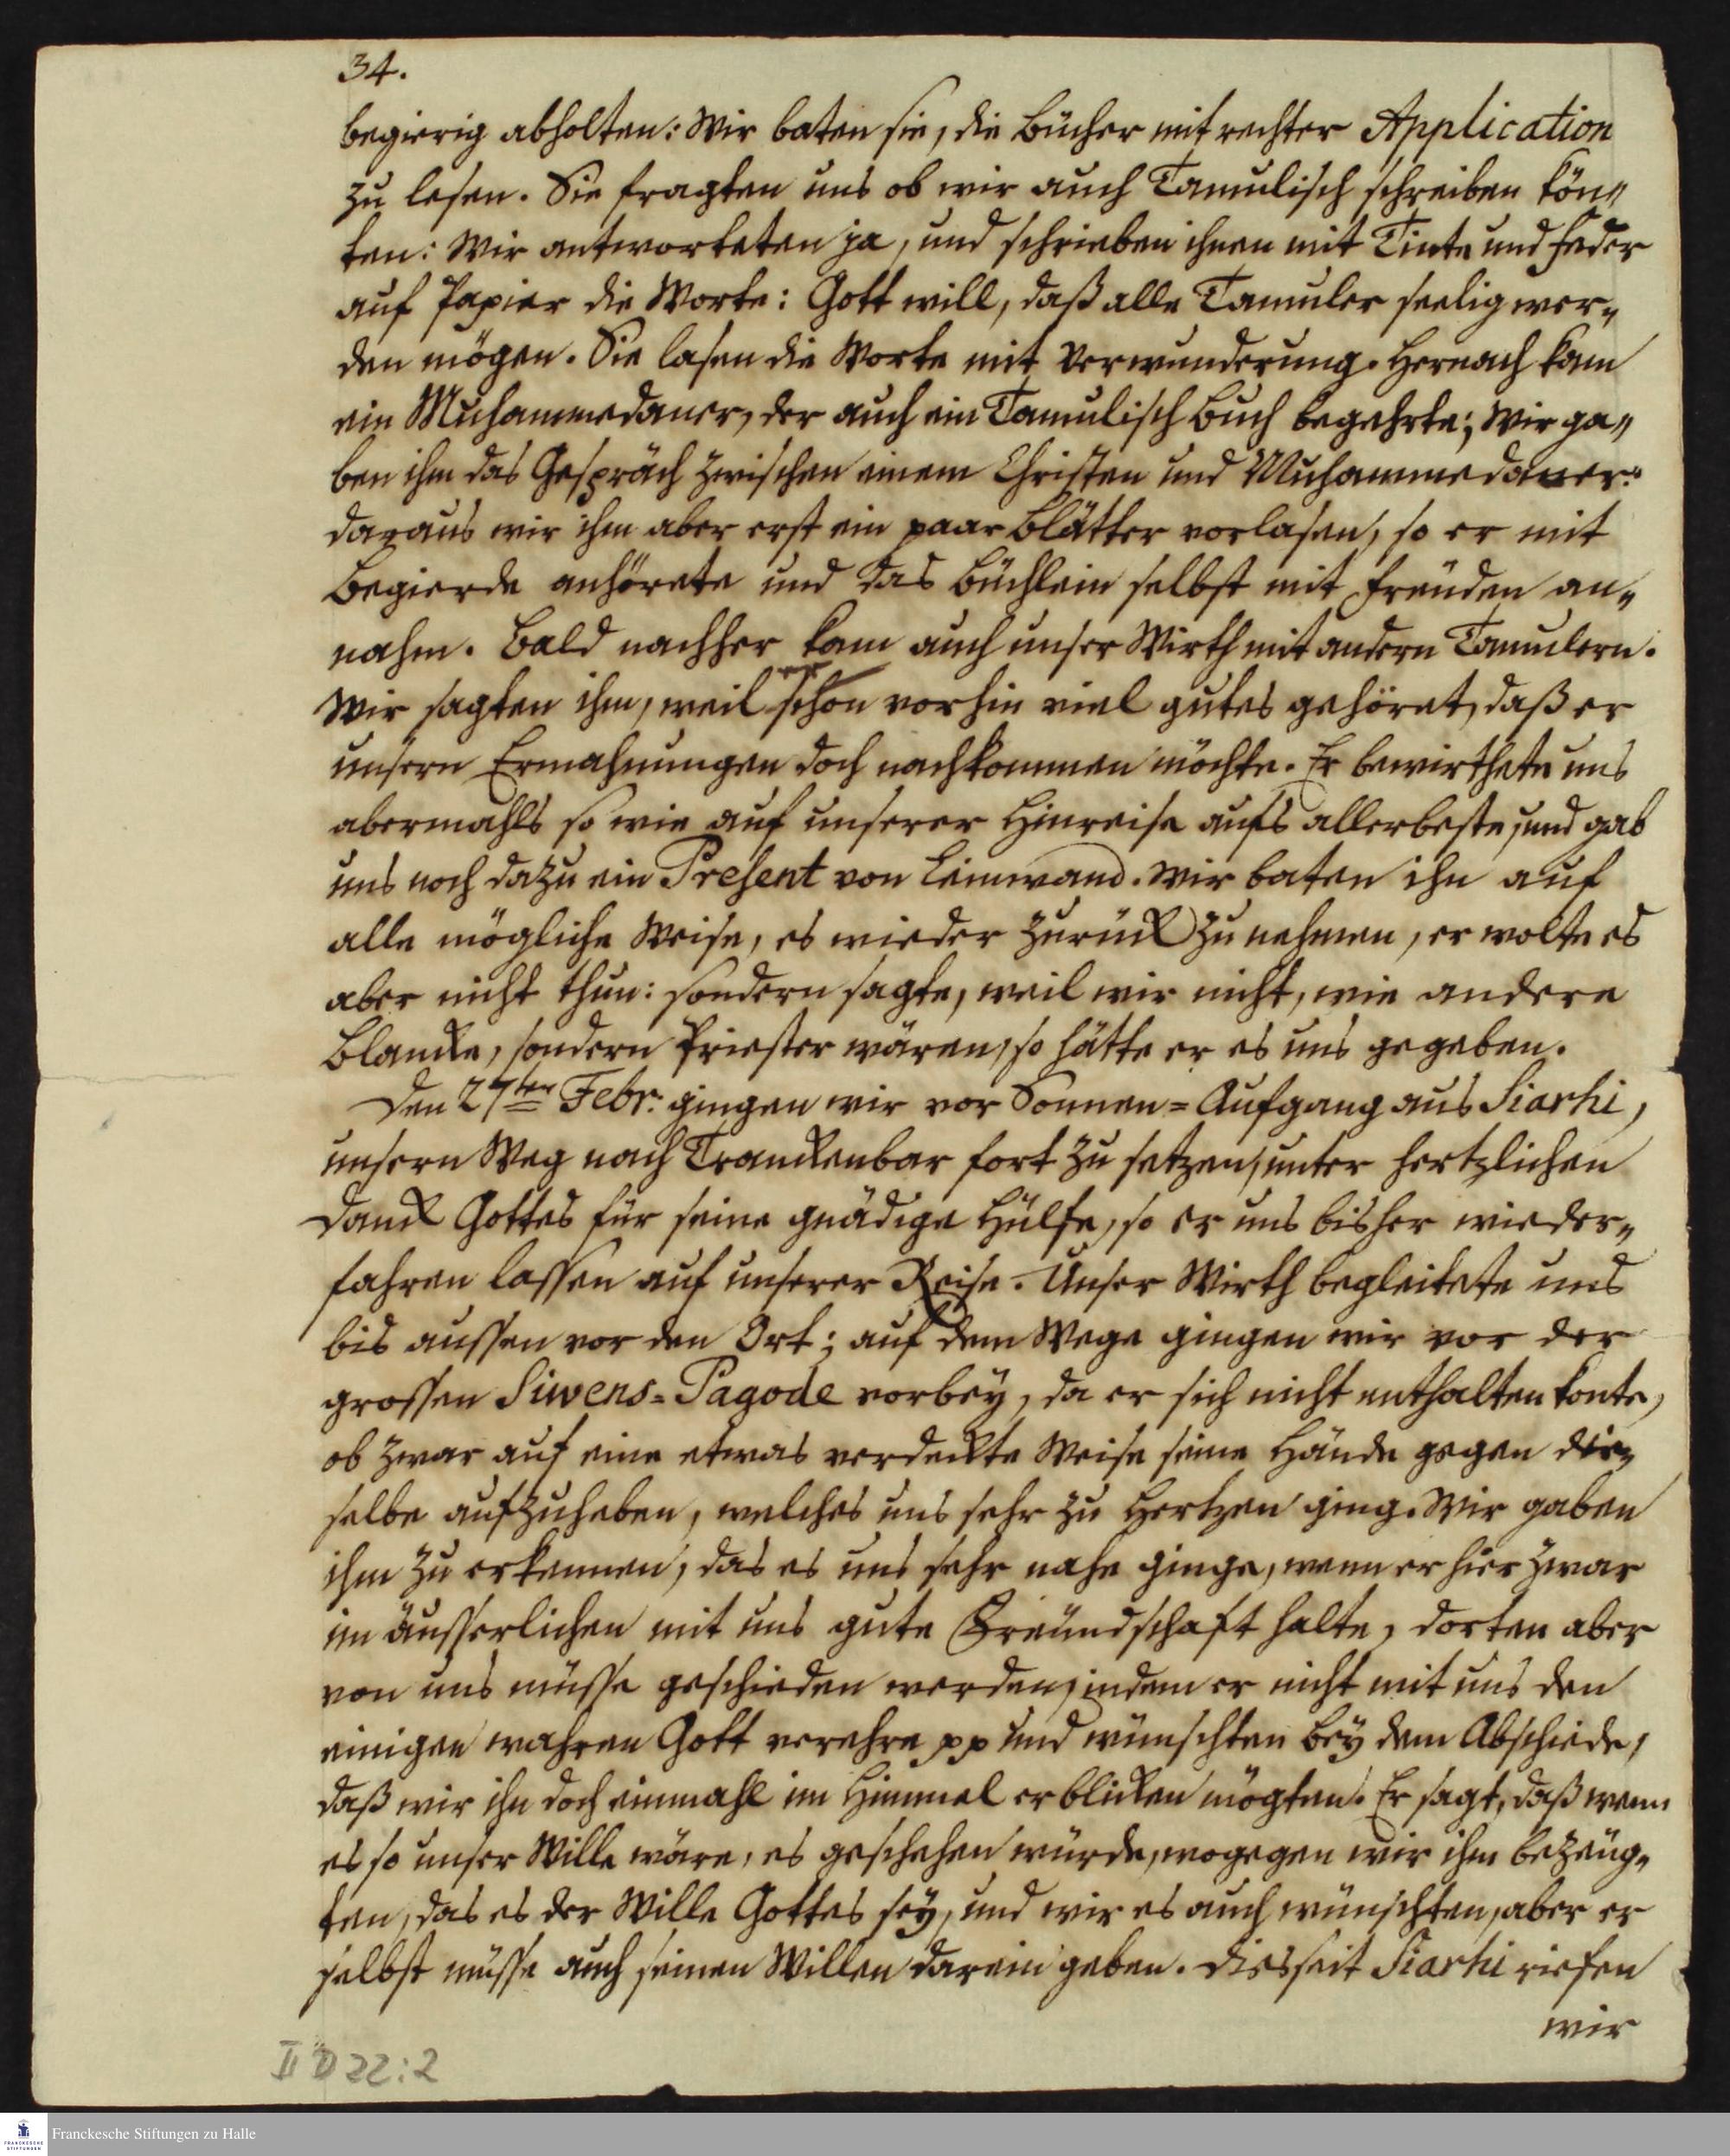 34.
begierig abholten: Wir baten sie, die Bücher mit rechter Application
zu lesen. Sie fragten uns ob wir auch Tamulisch schreiben kön„
ten: Wir antworteten ja, und schrieben ihnen mit Tinte und Feder
auf Papier die Worte: Gott will, daß alle Tamuler seelig wer„
den mögen. Sie lasen die Worte mit Verwunderung. Hernach kam
ein Muhammedaner, der auch ein Tamulisch Buch begehrte; Wir ga„
ben ihm das Gespräch zwischen einem Christen und Muhammedaner:
daraus wir ihm aber erst ein paar Blätter vorlasen, so er mit
Begierde anhörete und das Büchlein selbst mit Freuden an„
nahm. Bald nachher kam auch unser Wirth mit andern Tamulern.
Wir sagten ihm, weil er schon vorhin viel gutes gehöret, daß er
unsern Ermahnungen doch nachkommen möchte. Er bewirthete uns
abermahls so wie auf unserer Hinreise aufs allerbeste, und gab
uns noch dazu ein Present von Leinwand. Wir baten ihn auf
alle mögliche Weise, es wieder zurück zu nehmen, er wolte es
aber nicht thun: sondern sagte, weil wir nicht, wie andere
Blancke, sondern Priester wären, so hätte er es uns gegeben.
Den 27ten Febr. gingen wir vor Sonnen=Aufgang aus Siarhi,
unsern Weg nach Tranckenbar fort zu setzen, unter hertzlichen
Danck Gottes für seine gnädige Hülfe, so er uns bisher wieder„
fahren lassen auf unserer Reise. Unser Wirth begleitete uns
bis aussen vor den Ort; auf dem Wege gingen wir vor der
grossen Siwens=Pagode vorbey, da er sich nicht enthalten konte,
ob zwar auf eine etwas verdeckte Weise seine Hände gegen die„
selbe aufzuheben, welches uns sehr zu Hertzen ging. Wir gaben
ihm zu erkennen, das es uns sehr nahe ginge, wenn er hier zwar
im äusserlichen mit uns gute Freundschaft halte, dorten aber
von uns müsse geschieden werden, indem er nicht mit uns den
einigen wahren Gott verehre pp und wünschten bey dem Abschiede,
daß wir ihn doch einmahl im Himmel erblicken mögten. Er sagt, daß wenn
es so unser Wille wäre, es geschehen würde, wogegen wir ihm bezeug„
ten, das es der Wille Gottes sey, und wir es auch wünschten, aber er
selbst müsse auch seinen Willen darein geben. Disseit Siarhi riefen
wir
II D 22:2
Franckesche Stiftungen zu Halle
FRANCKESCHE
STIFTUNGEN